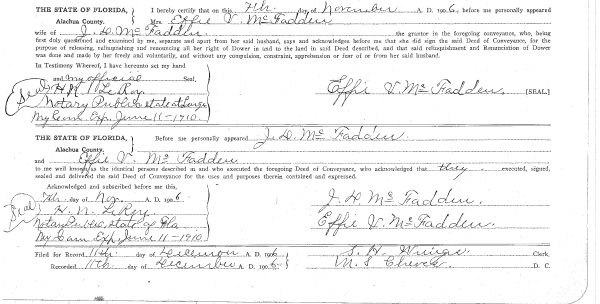 THE STATE OF FLORIDA, } I hereby certify that on this 7th. day of November A. D. 1906, before me personally appeared
Alachua County. Mrs. Effie V. McFadden
wife of J. D. McFadden the grantor in the foregoing conveyance, who, being
first duly questioned and examined by me, separate and apart from her said husband, says and acknowledges before me that she did sign the said Deed of Conveyance, for the
purpose of releasing, relinquishing and renouncing all her right of Dower in and to the land in said Deed described, and that said relinquishment and Renunciation of Dower
was done and made by her freely and voluntarily, and without any compulsion, constraint, apprehension or fear of or from her said husband.
In Testimony Whereof, I have hereunto set my hand
and my official Seal,
(Seal) H. N. LeRoy Effie V. McFadden [SEAL]
Notary Public state at Large
My Com. Exp. June 11-1910.
THE STATE OF FLORIDA, } Before me personally appeared J. D. McFadden
Alachua County.
and Effie V. McFadden
to me well known as the identical persons described in and who executed the foregoing Deed of Conveyance, who acknowledged that they executed, signed,
sealed and delivered the said Deed of Conveyance for the uses and purposes therein contained and expressed.
Acknowledged and subscribed before me this,
7th. day of Nov. 1906 J. D. McFadden.
(Seal) H. N. LeRoy. Effie V. McFadden.
Notary Public, State of Fla
My Com. Exp. June 11-1910
Filed for Record 11th day of December A. D. 1906 S. H. Clerk.
Recorded 11th day of December A. D. 1906 M. S. Cheves D. C.